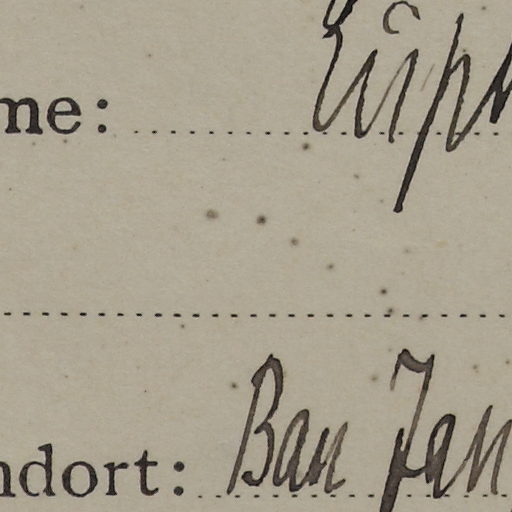 me: Euph
ndort: Ban Jan